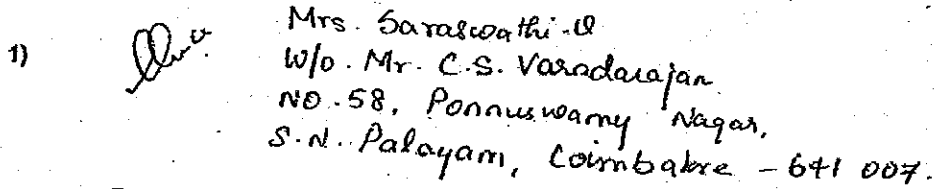 1) Mrs. Saraswathi.V
W/o. Mr. C.S. Varadarajan
NO.58, Ponnuswamy Nagar,
S.N. Palayam, Coimbatore - 641 007.